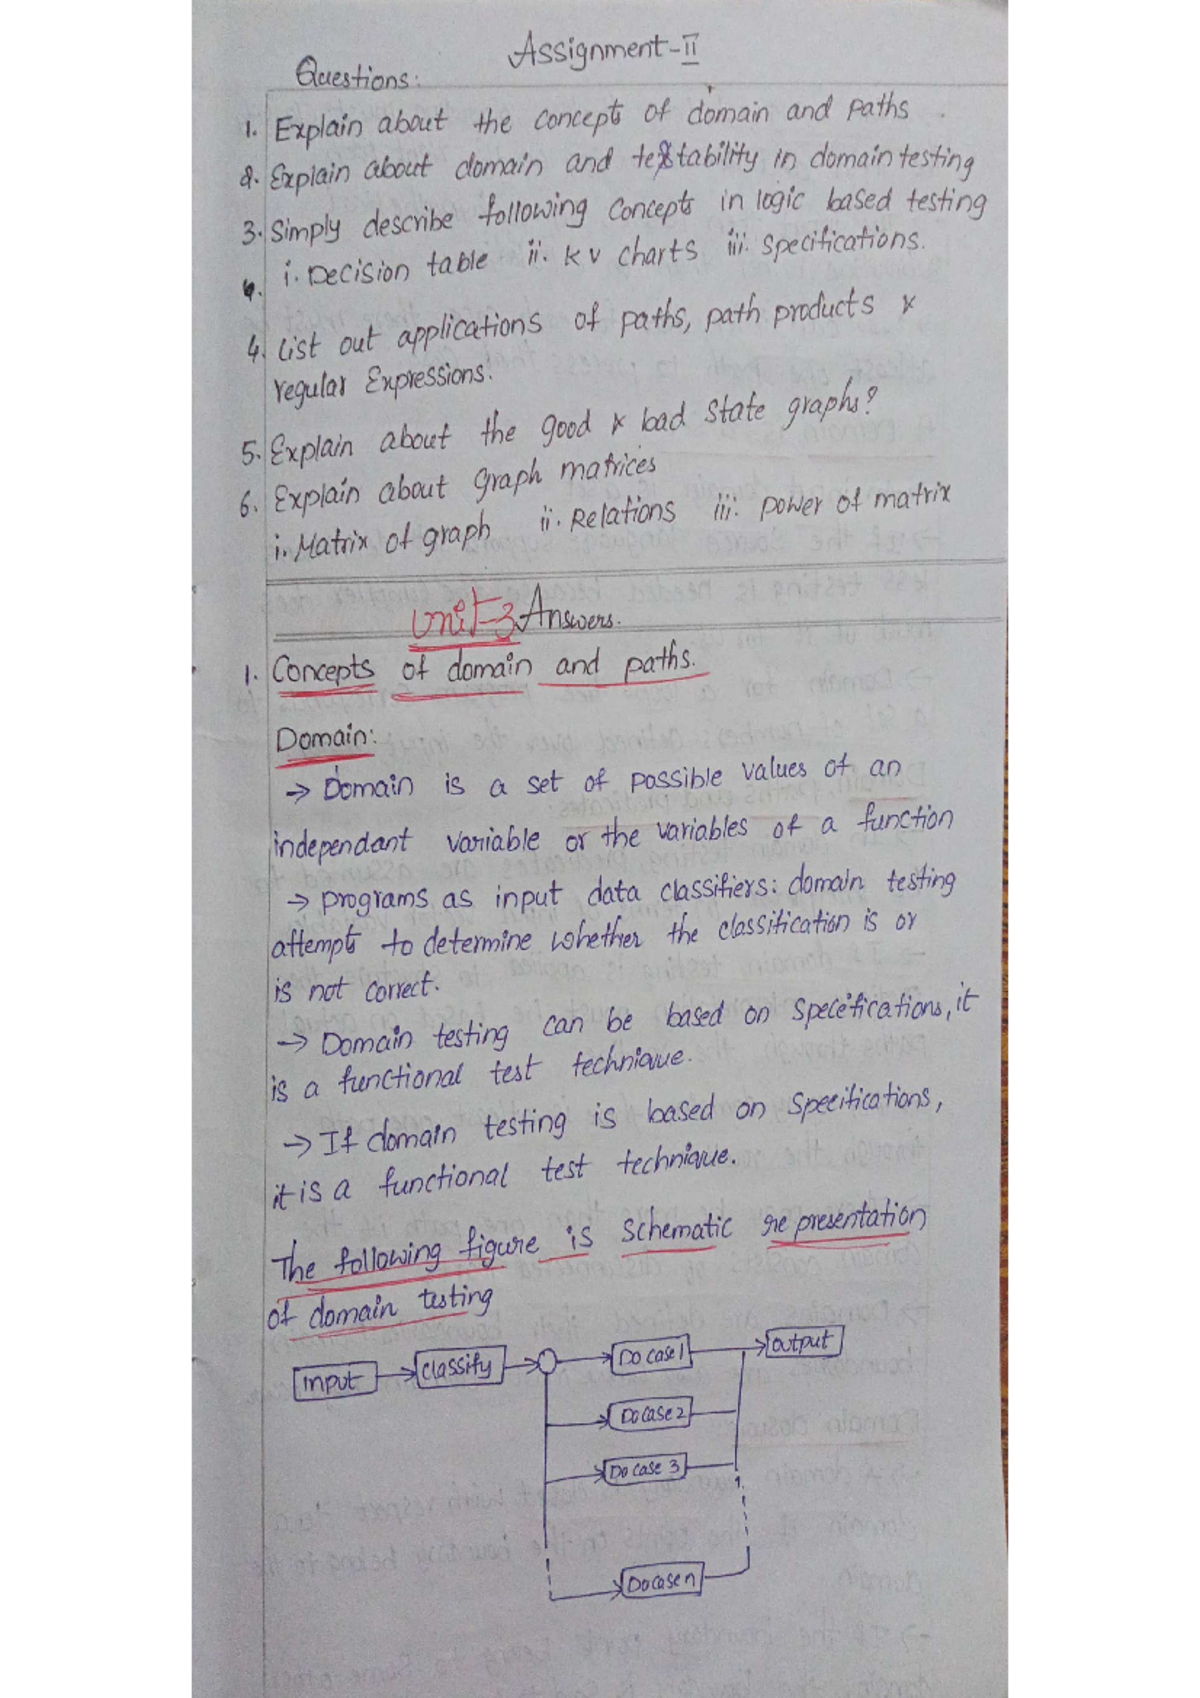 Assignment-II
Questions:
1. Explain about the concepts of domain and paths.
2. Explain about domain and testability in domain testing
3. Simply describe following concepts in logic based testing
i. Decision table ii. K V charts iii. Specifications.
4. List out applications of paths, path products &
regular Expressions.
5. Explain about the good & bad state graphs?
6. Explain about Graph matrices
i. Matrix of graph ii. Relations iii. power of matrix
Unit-3 Answers.
1. Concepts of domain and paths.
Domain:
→ Domain is a set of possible values of an
independant variable or the variables of a function
→ programs as input data classifiers: domain testing
attempts to determine whether the classification is or
is not correct.
→ Domain testing can be based on specefications, it
is a functional test technique.
→ If domain testing is based on specifications,
it is a functional test technique.
The following figure is schematic representation
of domain testing
input
classify
Do case 1
output
Do case 2
Do case 3
Do case n